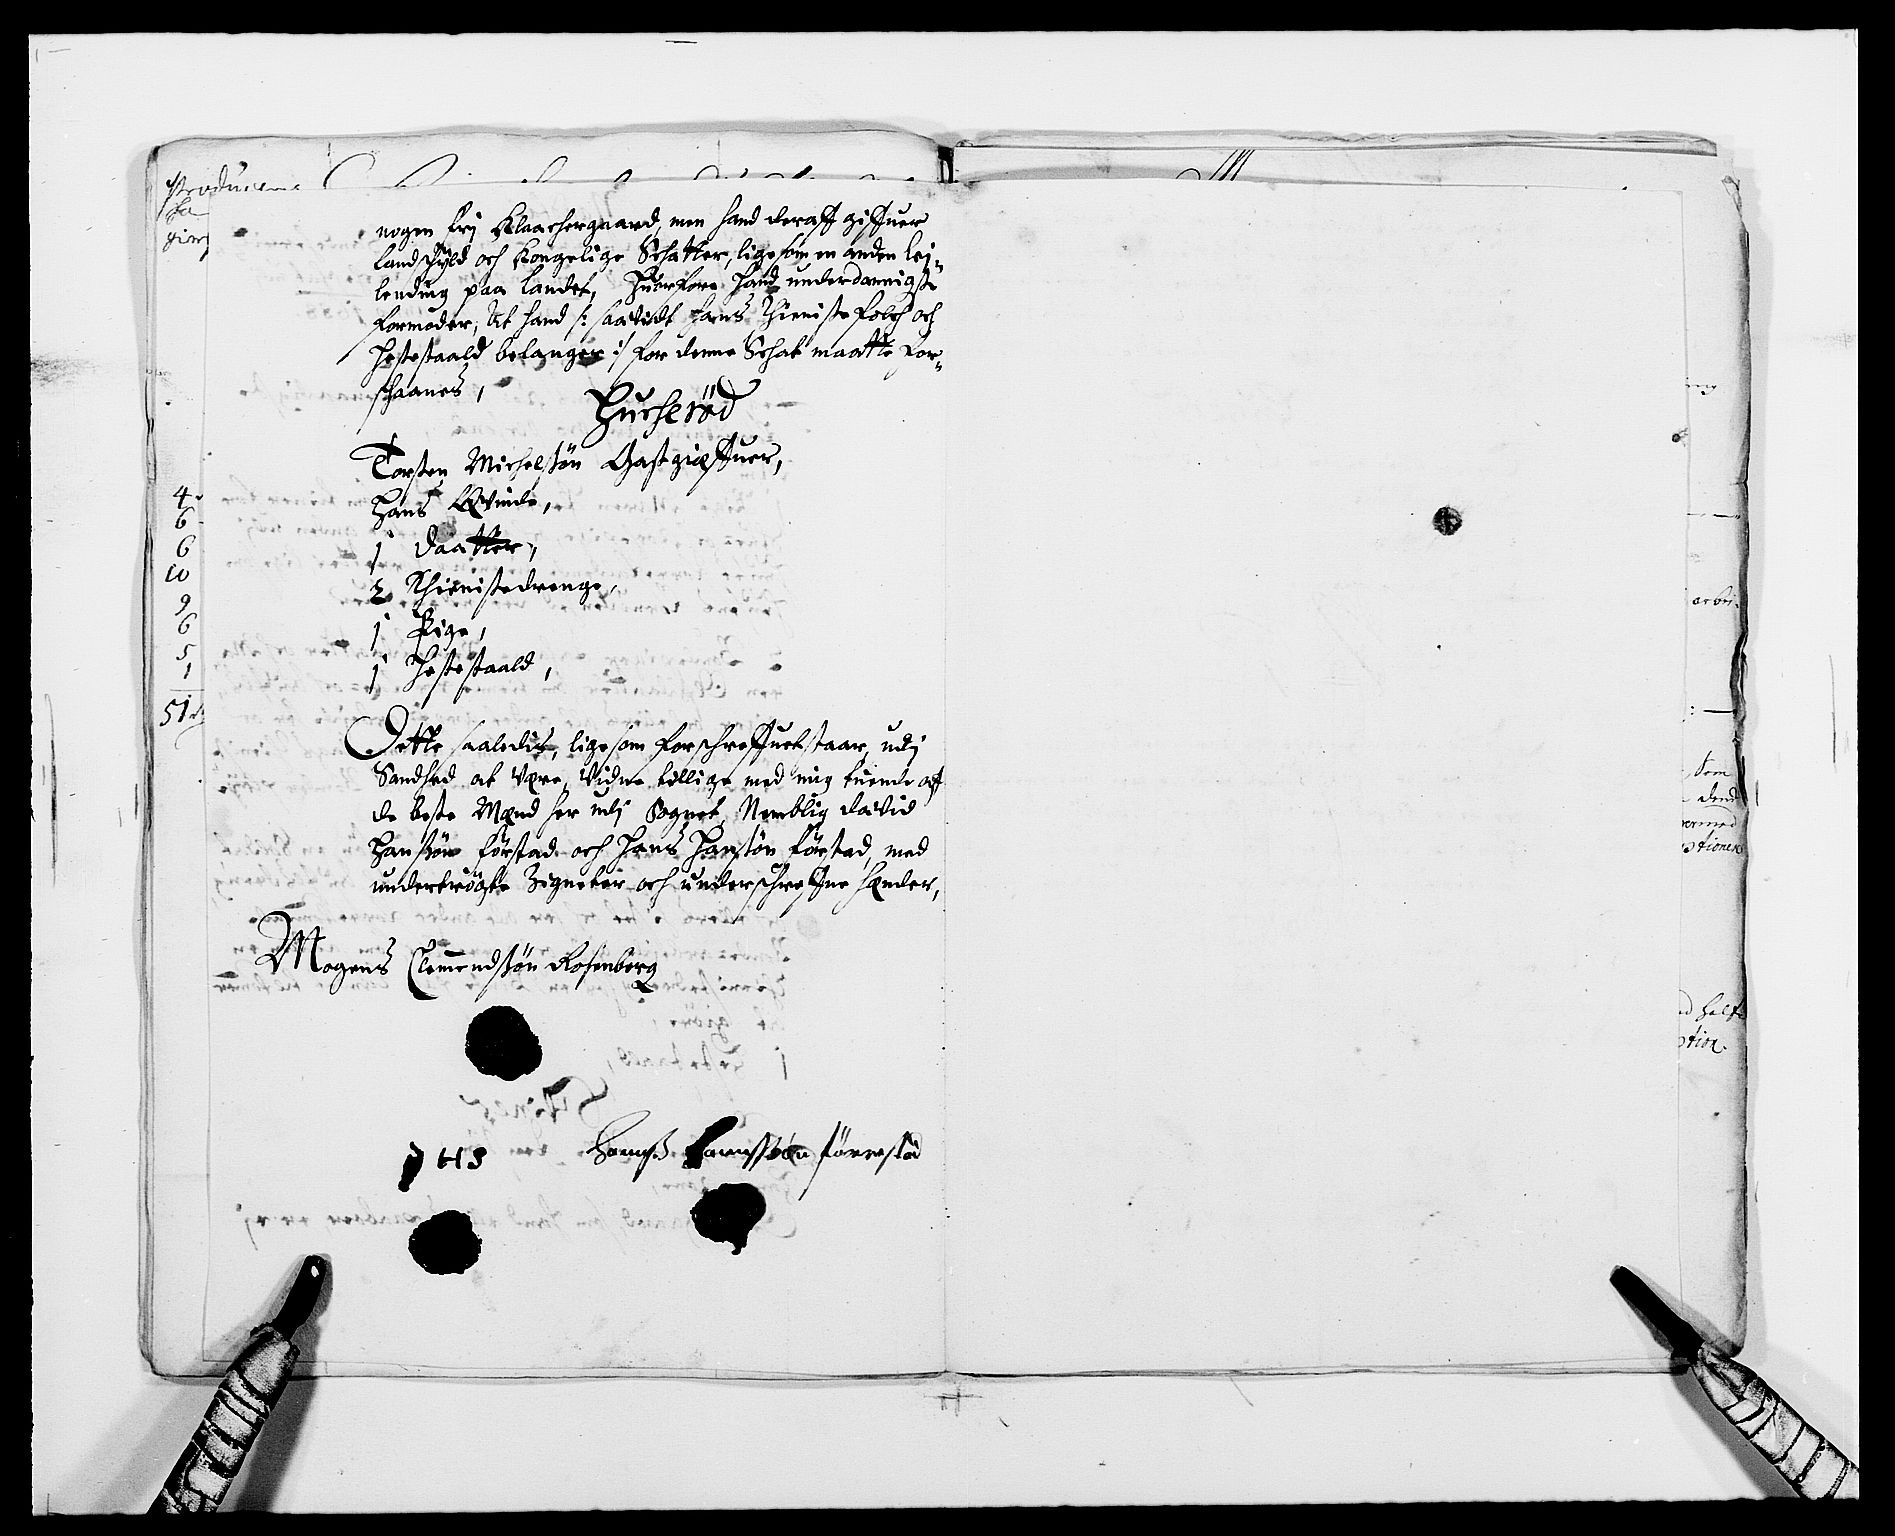 nogen frj Klocherguard, men hand deraff giffuer
landschyld och Kongelige Schatter, lige som en anden Lej-
lending paa landet, Huorfore hand underdannigste
formoder, At hand /: saavidt hans Thieniste folch och
Hestestaald belanger :/ for denne Schat maatte for-
schaanes,
Hucherød
Torsten Michelsøn Gastgiffuer,
Hans Qvinde,
1 Daatter,
2 Thienistedrenge,
1 Pige,
1 Hestestaald,
Dette saaledis, lige som forschreffuet staar, udj
Sandhed at være, Vidne tillige med mig tuende aff
de beste Mænd her udj Sognet, Nemblig David
Hansøn Førstad och Hans Hansøn Førstad, med
undertrögte Zigneter och underschreffne Hænder,
Mogens Clemendsøn Rosenberg
HS Hanss Hanssøn førrestad
4
6
6
10
9
6
5
1
51